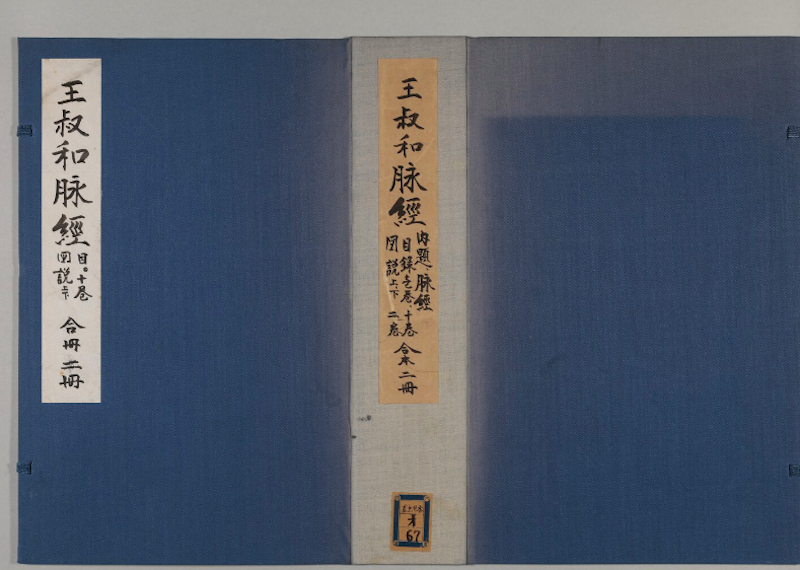 王叔和脉經
内題、脉經
目録壱巻、十巻
図説上、下 二巻
合本二冊
67
王叔和脉經
目。十巻
図説上下
合冊 二冊